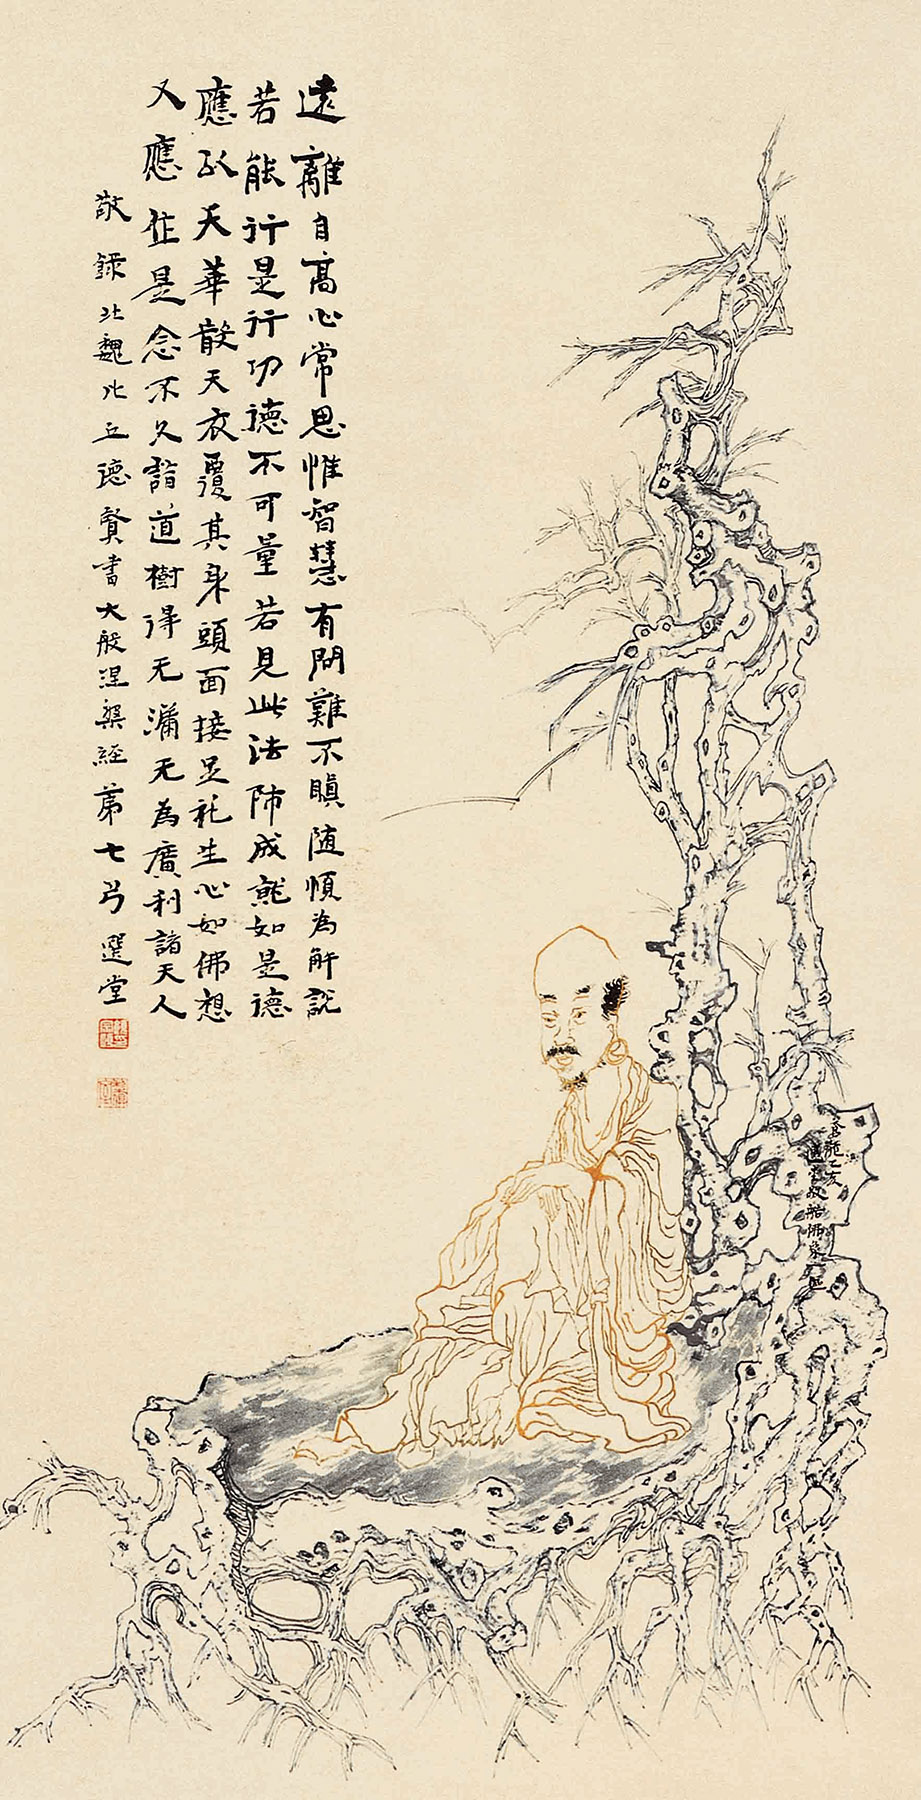 遠離自高心常思惟智慧有問難不瞋随順為解說
若能行是行功德不可量若見此法師成就如是德
應以天華散天衣覆其身頭面接足礼生心如佛想
又應住是念不久詣道樹得无漏无為廣利諸天人
敬録北魏比丘德賢書大般涅槃經第七弓選堂
乙亥
選堂敬佛象